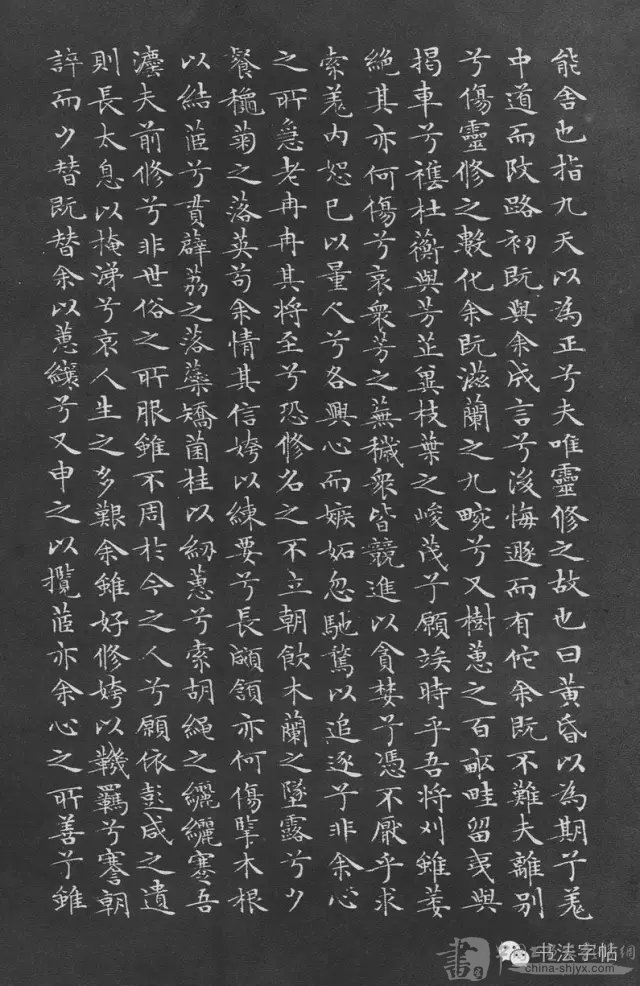 能舍也指九天以為正兮夫唯靈修之故也曰黃昏以為期兮羌
中道而改路初既與余成言兮後悔遯而有佗余既不難夫離別
兮傷靈修之數化余既滋蘭之九畹兮又樹蕙之百畝畦留夷與
揭車兮襍杜蘅與芳芷兾枝葉之峻茂兮願竢時乎吾將刈雖萎
絕其亦何傷兮哀眾芳之蕪穢眾皆競進以貪婪兮憑不厭乎求
索羌內恕己以量人兮各興心而嫉妬忽馳騖以追逐兮非余心
之所急老冉冉其將至兮恐修名之不立朝飲木蘭之墜露兮夕
餐穐菊之落英苟余情其信姱以練要兮長顑頷亦何傷擥木根
以結茝兮貫薜荔之落蘂矯菌桂以紉蕙兮索胡繩之纚纚謇吾
灋夫前修兮非世俗之所服雖不周於今之人兮願依彭咸之遺
則長太息以掩涕兮哀人生之多艱余雖好修姱以鞿羈兮謇朝
誶而夕替既替余以蕙纕兮又申之以攬茝亦余心之所善兮雖
書法字帖
china-shjyx.com